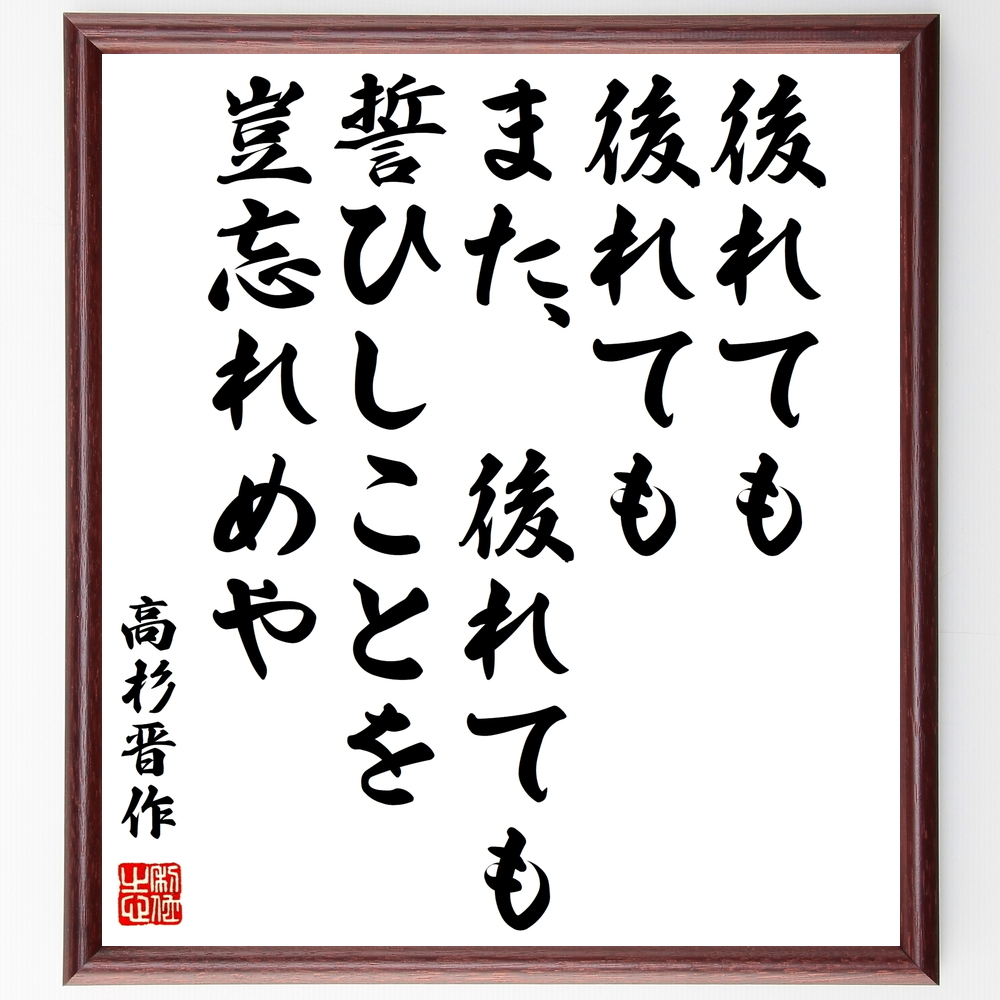 後れても
後れても
また、後れても
誓ひしことを
豈忘れめや
高杉晋作